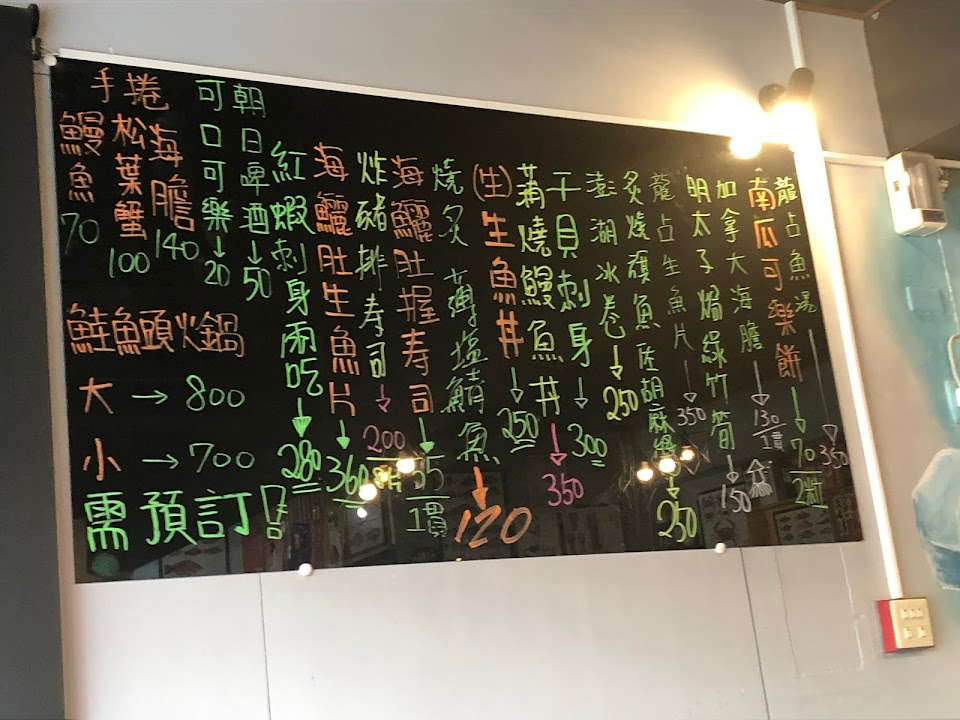 手捲
鰻魚 70
松葉蟹 100
海膽 140
可口可樂 → 20
朝日啤酒 → 50
鮭魚頭火鍋
大 → 800
小 → 700
需預訂!
紅蝦刺身兩吃 → 280
海鱺肚生魚片 → 360
炸豬排壽司 → 200
海鱺肚握壽司 → 1貫
燒炙薄塩鯖魚 → 120
(生)生魚丼 → 250
蒲燒鰻魚丼 → 350
干貝刺身 → 300
澎湖冰卷 → 250
炙燒旗魚佐胡麻醬 → 250
龍占生魚片 → 350
明太子焗綠竹筍 → 150
加拿大海膽 → 130 1貫
南瓜可樂餅 → 70 2粒
龍占魚湯 → 350